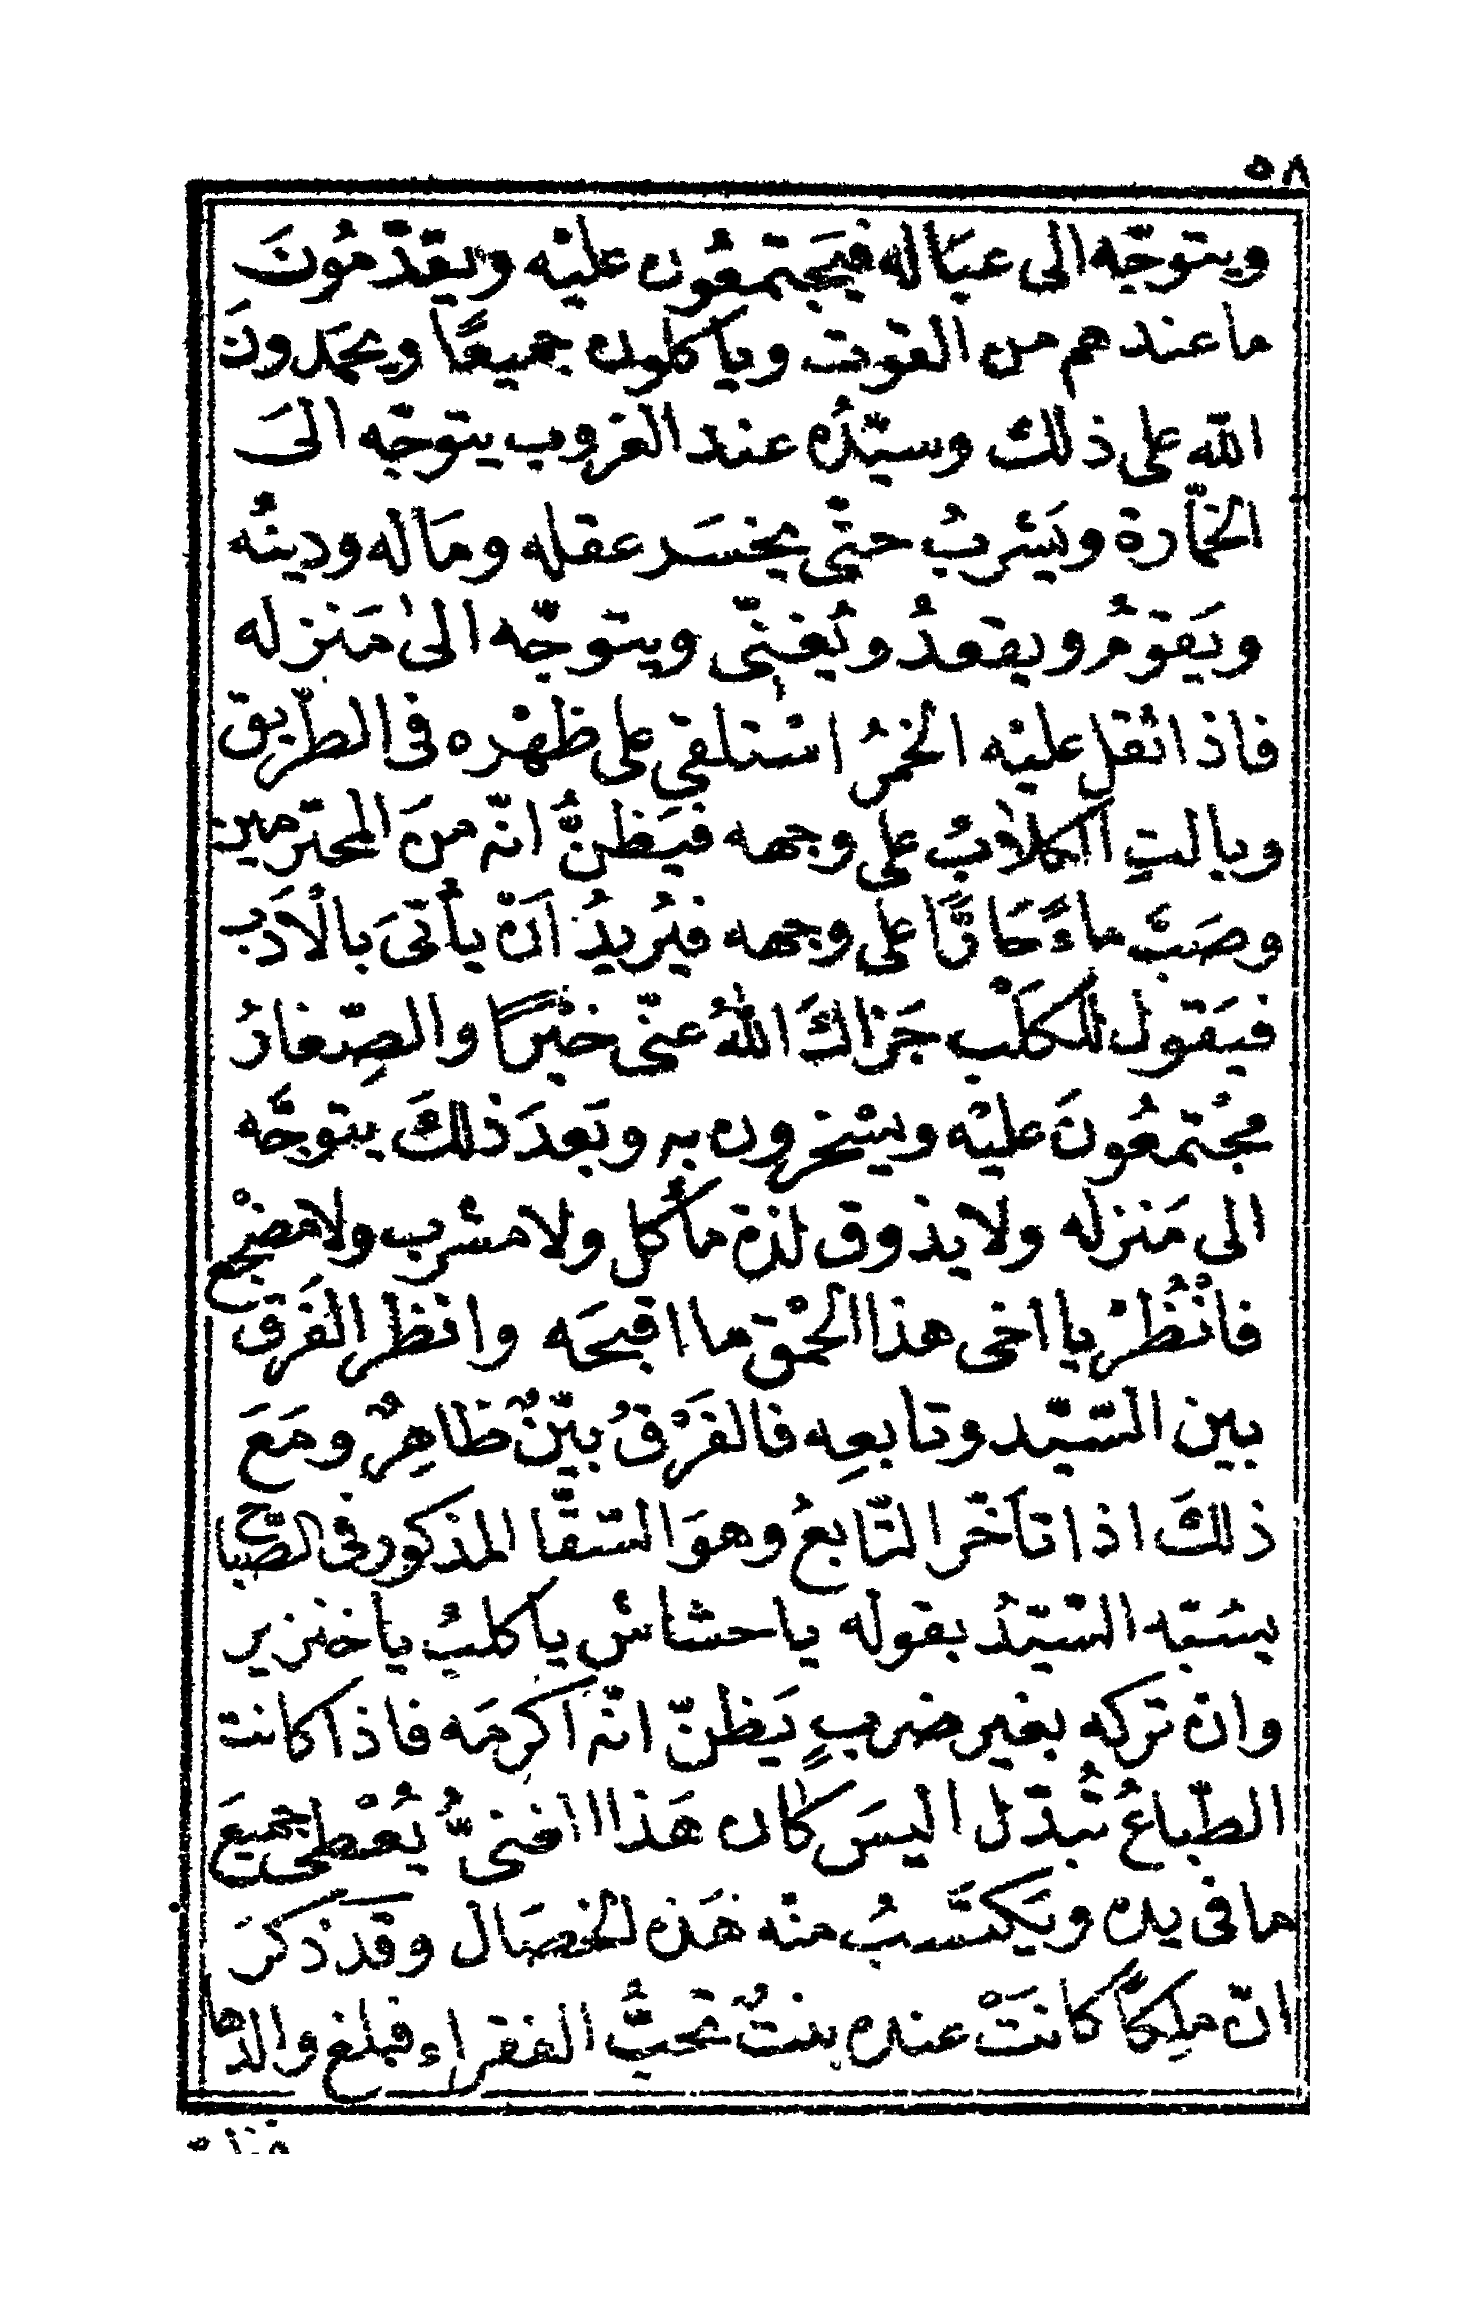 ٥٨
ويتوجّه الى عيَاله فيَجتمعُون عليْه ويقدّمُونَ
ما عندهم من القوت وياكلون جميعًا ويحمَدونَ
الله على ذلك وسيّدُه عند الغروب يتوجّه الىَ
الخمّارة ويَشْربُ حتّى يخسَر عقله ومَاله ودينُه
ويَقومُ ويقعدُ ويُغنّى ويتوجّه الىٰ مَنزله
فاذا ثقل عليْه الخمرُ اسْتلقى على ظهْره فى الطّريق
وبالتِ الكلابُ على وجهه فيَظنُّ انّه منَ المحترمين
وصَبَّتْ ماءً حَارًّا على وجهه فيُريدُ اَنْ يأتىَ بالأدَب
فيَقول للكلَبْ جَزاكَ اللهُ عنّى خيْرًا والصِّغارُ
مجُتمعُونَ عليْه ويسْخرون به وبَعدَ ذلكَ يتوجَّه
الى مَنزله ولا يذوق لذة مأكل ولا مشرب ولا مضْجع
فانْظُرْ يا اخى هذا الحمْق ما اقبحَه وانظر الفَرق
بين السّيّد وتابعِه فالفَرْقُ بيّنٌ ظاهِرٌ ومَعَ
ذلكَ اذا تأخّر التّابعُ وهوَ السّقّا المذكور فى الصّباح
يسُبّه السّيّدُ بقوله يا حشاش يا كلبُ يا خنزير
وان تركه بغير ضربٍ يَظنّ انّه اكرمَه فاذا كانت
الطّباعُ تُبدّل اليسَ كان هَذا اغنىُّ يُعْطى جميعَ
ما فى يده ويَكتَسبُ منْه هَذه الخصَال وقد ذكرَ
انّ ملِكًا كانَتْ عنده بنتٌ تحبُّ الفقراء فبلغ والدها